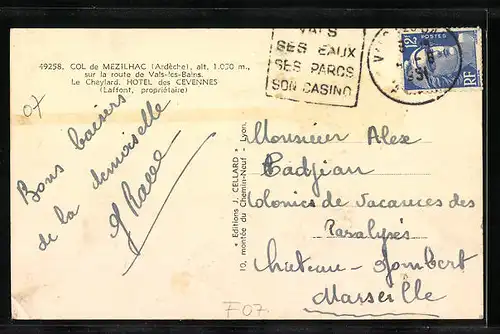 49258. COL de MEZILHAC (Ardèche), alt. 1.030 m.,
sur la route de Vals-les-Bains.
Le Cheylard. HOTEL des CEVENNES
(Laffont, propriétaire)
07
Bons baisers
de la demoiselle
VALS
SES EAUX
SES PARCS
SON CASINO
12F
RF
POSTES
* Editions J. CELLARD *
10, montée du Chemin-Neuf - Lyon.
Monsieur Alex
Colonies de Vacances des
Paralysés
Chateau-Gombert
Marseille
F07